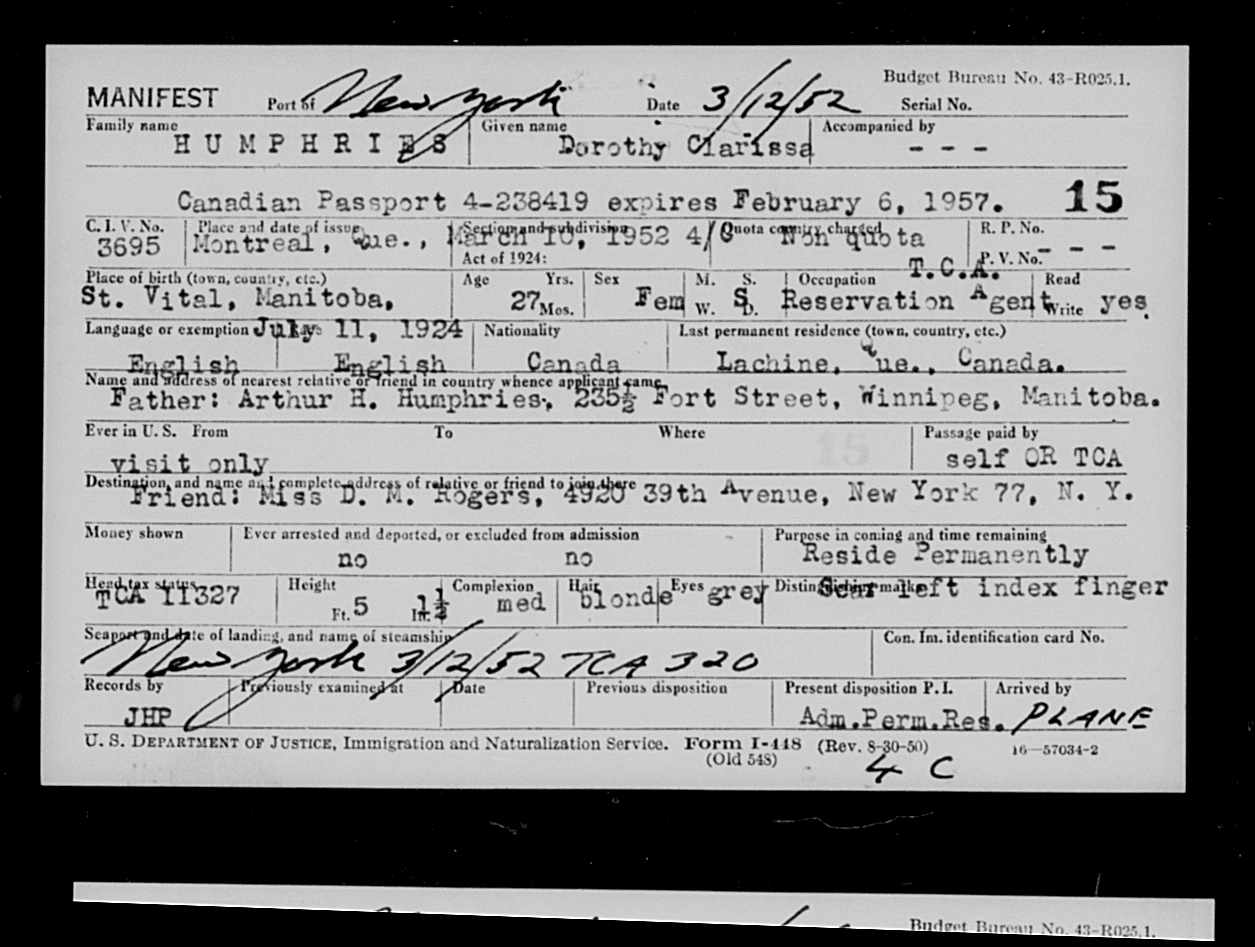 Budget Bureau No. 43-R025.1.
MANIFEST Port of New York Date 3/12/52 Serial No.
Family name Given name Accompanied by
HUMPHRIES Dorothy Clarissa - - -
Canadian Passport 4-238419 expires February 6, 1957. 15
C. I. V. No. Place and date of issue Section and subdivision Quota country charged R. P. No.
3695 Montreal, Que., March 10, 1952 4/C Non quota - - -
Act of 1924: P. V. No.
T.C.A.
Place of birth (town, country, etc.) Age Yrs. Sex M. S. Occupation Read
St. Vital, Manitoba, 27 Mos. Fem W. S D. Reservation Agent Write yes
Language or exemption July 11, 1924 Nationality Last permanent residence (town, country, etc.)
English English Canada Lachine, Que., Canada.
Name and address of nearest relative or friend in country whence applicant came
Father: Arthur H. Humphries, 235½ Fort Street, Winnipeg, Manitoba.
Ever in U. S. From To Where 15 Passage paid by
visit only self OR TCA
Destination, and name and complete address of relative or friend to join there
Friend: Miss D. M. Rogers, 4920 39th Avenue, New York 77, N. Y.
Money shown Ever arrested and deported, or excluded from admission Purpose in coming and time remaining
no no Reside Permanently
Head tax status Height Complexion Hair Eyes Distinguishing marks
TCA 11327 Ft. 5 In. 1½ med blonde grey Scar left index finger
Seaport and date of landing, and name of steamship Con. Im. identification card No.
New York 3/12/52 TCA 320
Records by Previously examined at Date Previous disposition Present disposition P. I. Arrived by
JHP Adm.Perm.Res. PLANE
U. S. DEPARTMENT OF JUSTICE, Immigration and Naturalization Service. Form I-448 (Rev. 8-30-50) 16—57034-2
(Old 548) 4 C
Budget Bureau No. 43-R025.1.